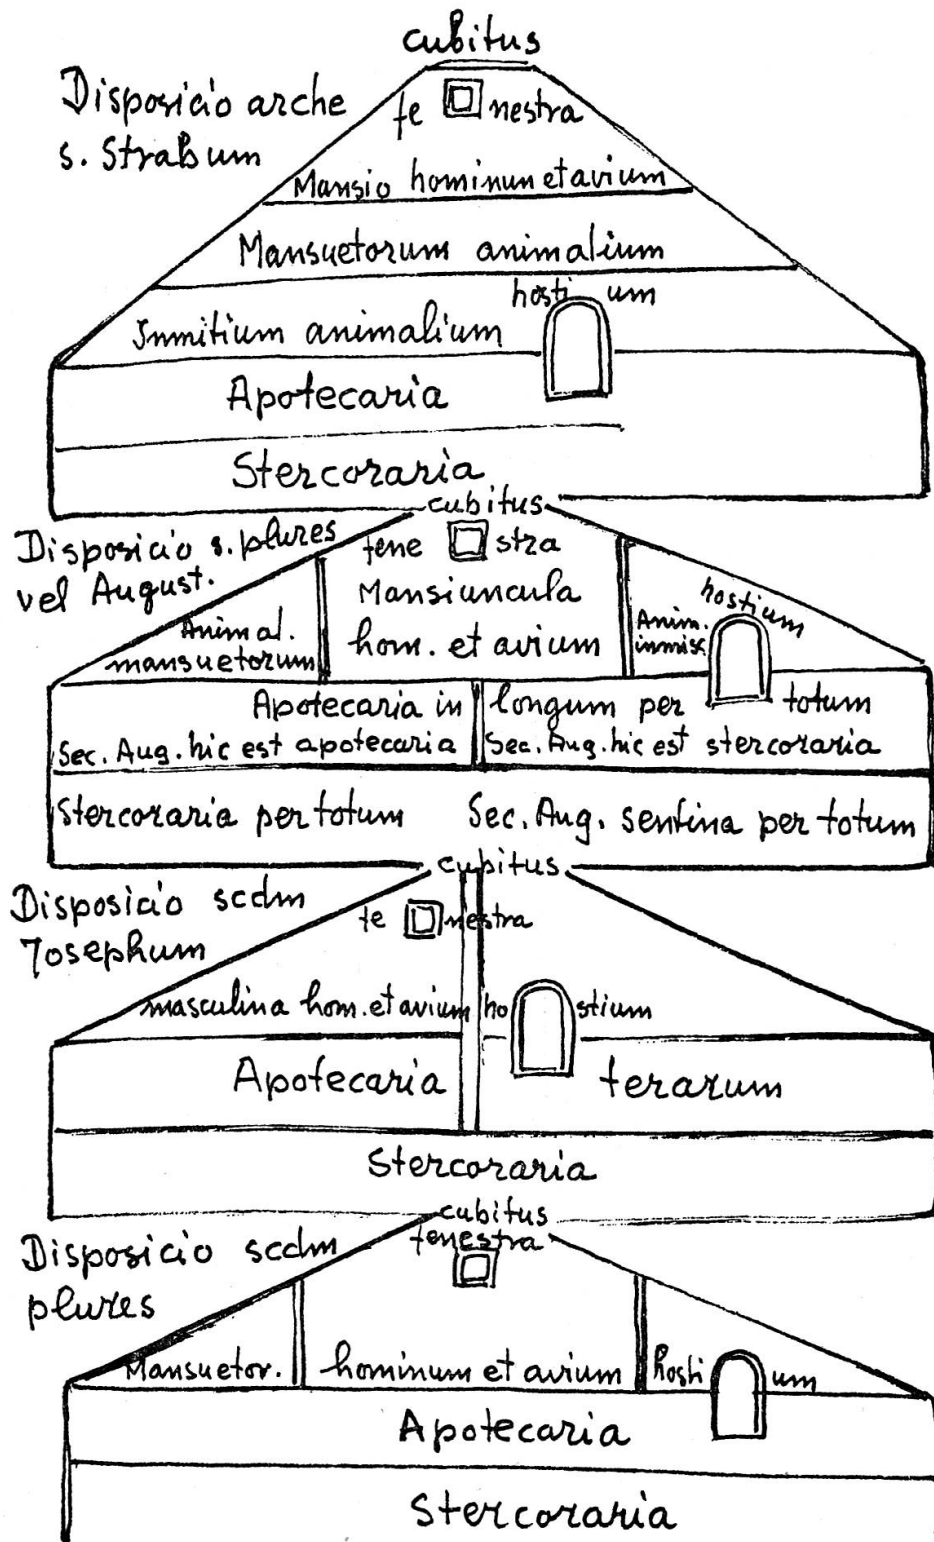 cubitus
Disposicio arche
s. Strabum
fe nestra
Mansio hominun et avium
Mansuetorum animalium
hosti um
Inmitium animalium
Apotecaria
Stercoraria
cubitus
Disposicio s. plures
vel August.
fene stra
Mansiuncula
hom. et avium
Animal.
mansuetorum
hostium
Anim.
inmisc.
Apotecaria in longum per totum
Sec. Aug. hic est apotecaria Sec. Aug. hic est stercoraria
Stercoraria per totum Sec. Aug. sentina per totum
cubitus
Disposicio scdm
Josephum
fe nestra
masculina hom. et avium ho stium
Apotecaria terarum
Stercoraria
cubitus
fenestra
Disposicio scdm
plures
Mansuetor. hominum et avium hosti um
Apotecaria
Stercoraria